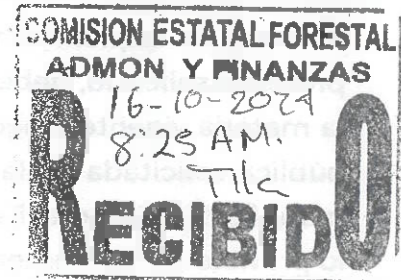 COMISION ESTATAL FORESTAL
ADMON Y FINANZAS
16-10-2024
8:25 AM.
RECIBIDO